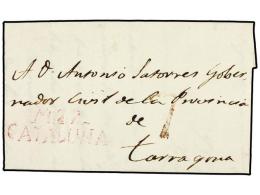 A D. Antonio Satorres Gober-
nador Civil de la Provincia
de
CATALUÑA
Tarragona